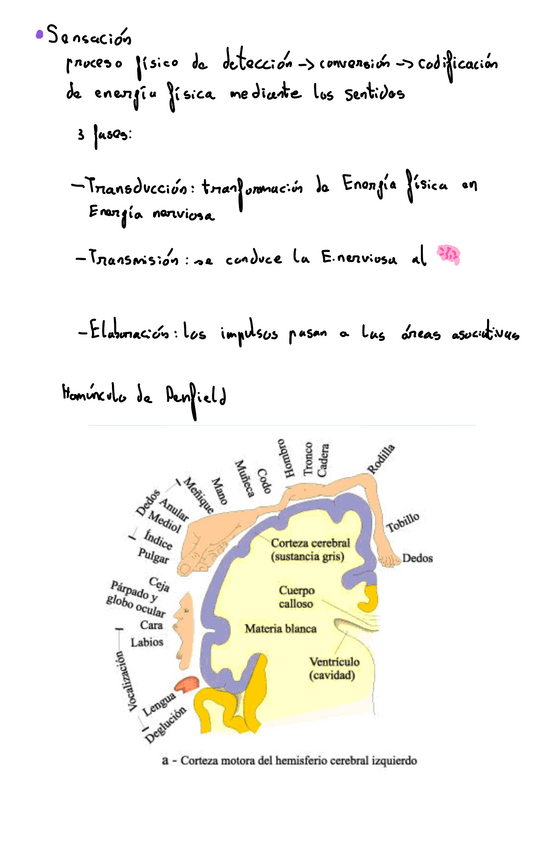 • Sensación
proceso físico de detección -> conversión -> codificación
de energía física mediante los sentidos
3 fases:
- Transducción: transformación de Energía física en
Energía nerviosa
- Transmisión: se conduce la E.nerviosa al
- Elaboración: los impulsos pasan a las áreas asociativas
Homúnculo de Penfield
Hombro
Tronco
Cadera
Rodilla
Codo
Muñeca
Mano
Meñique
Dedos
Anular
Mediol
Índice
Pulgar
Tobillo
Dedos
Corteza cerebral
(sustancia gris)
Ceja
Párpado y
globo ocular
Cara
Labios
Cuerpo
calloso
Materia blanca
Ventrículo
(cavidad)
Vocalización
Lengua
Deglución
a - Corteza motora del hemisferio cerebral izquierdo